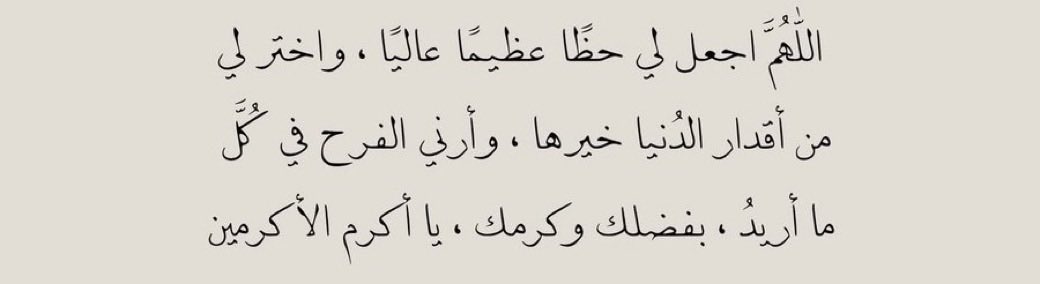 اللَّهُمَّ اجعل لي حظًا عظيمًا عاليًا ، واختر لي
من أقدار الدُنيا خيرها ، وأرني الفرح في كُلَّ
ما أريدُ ، بفضلك وكرمك ، يا أكرم الأكرمين